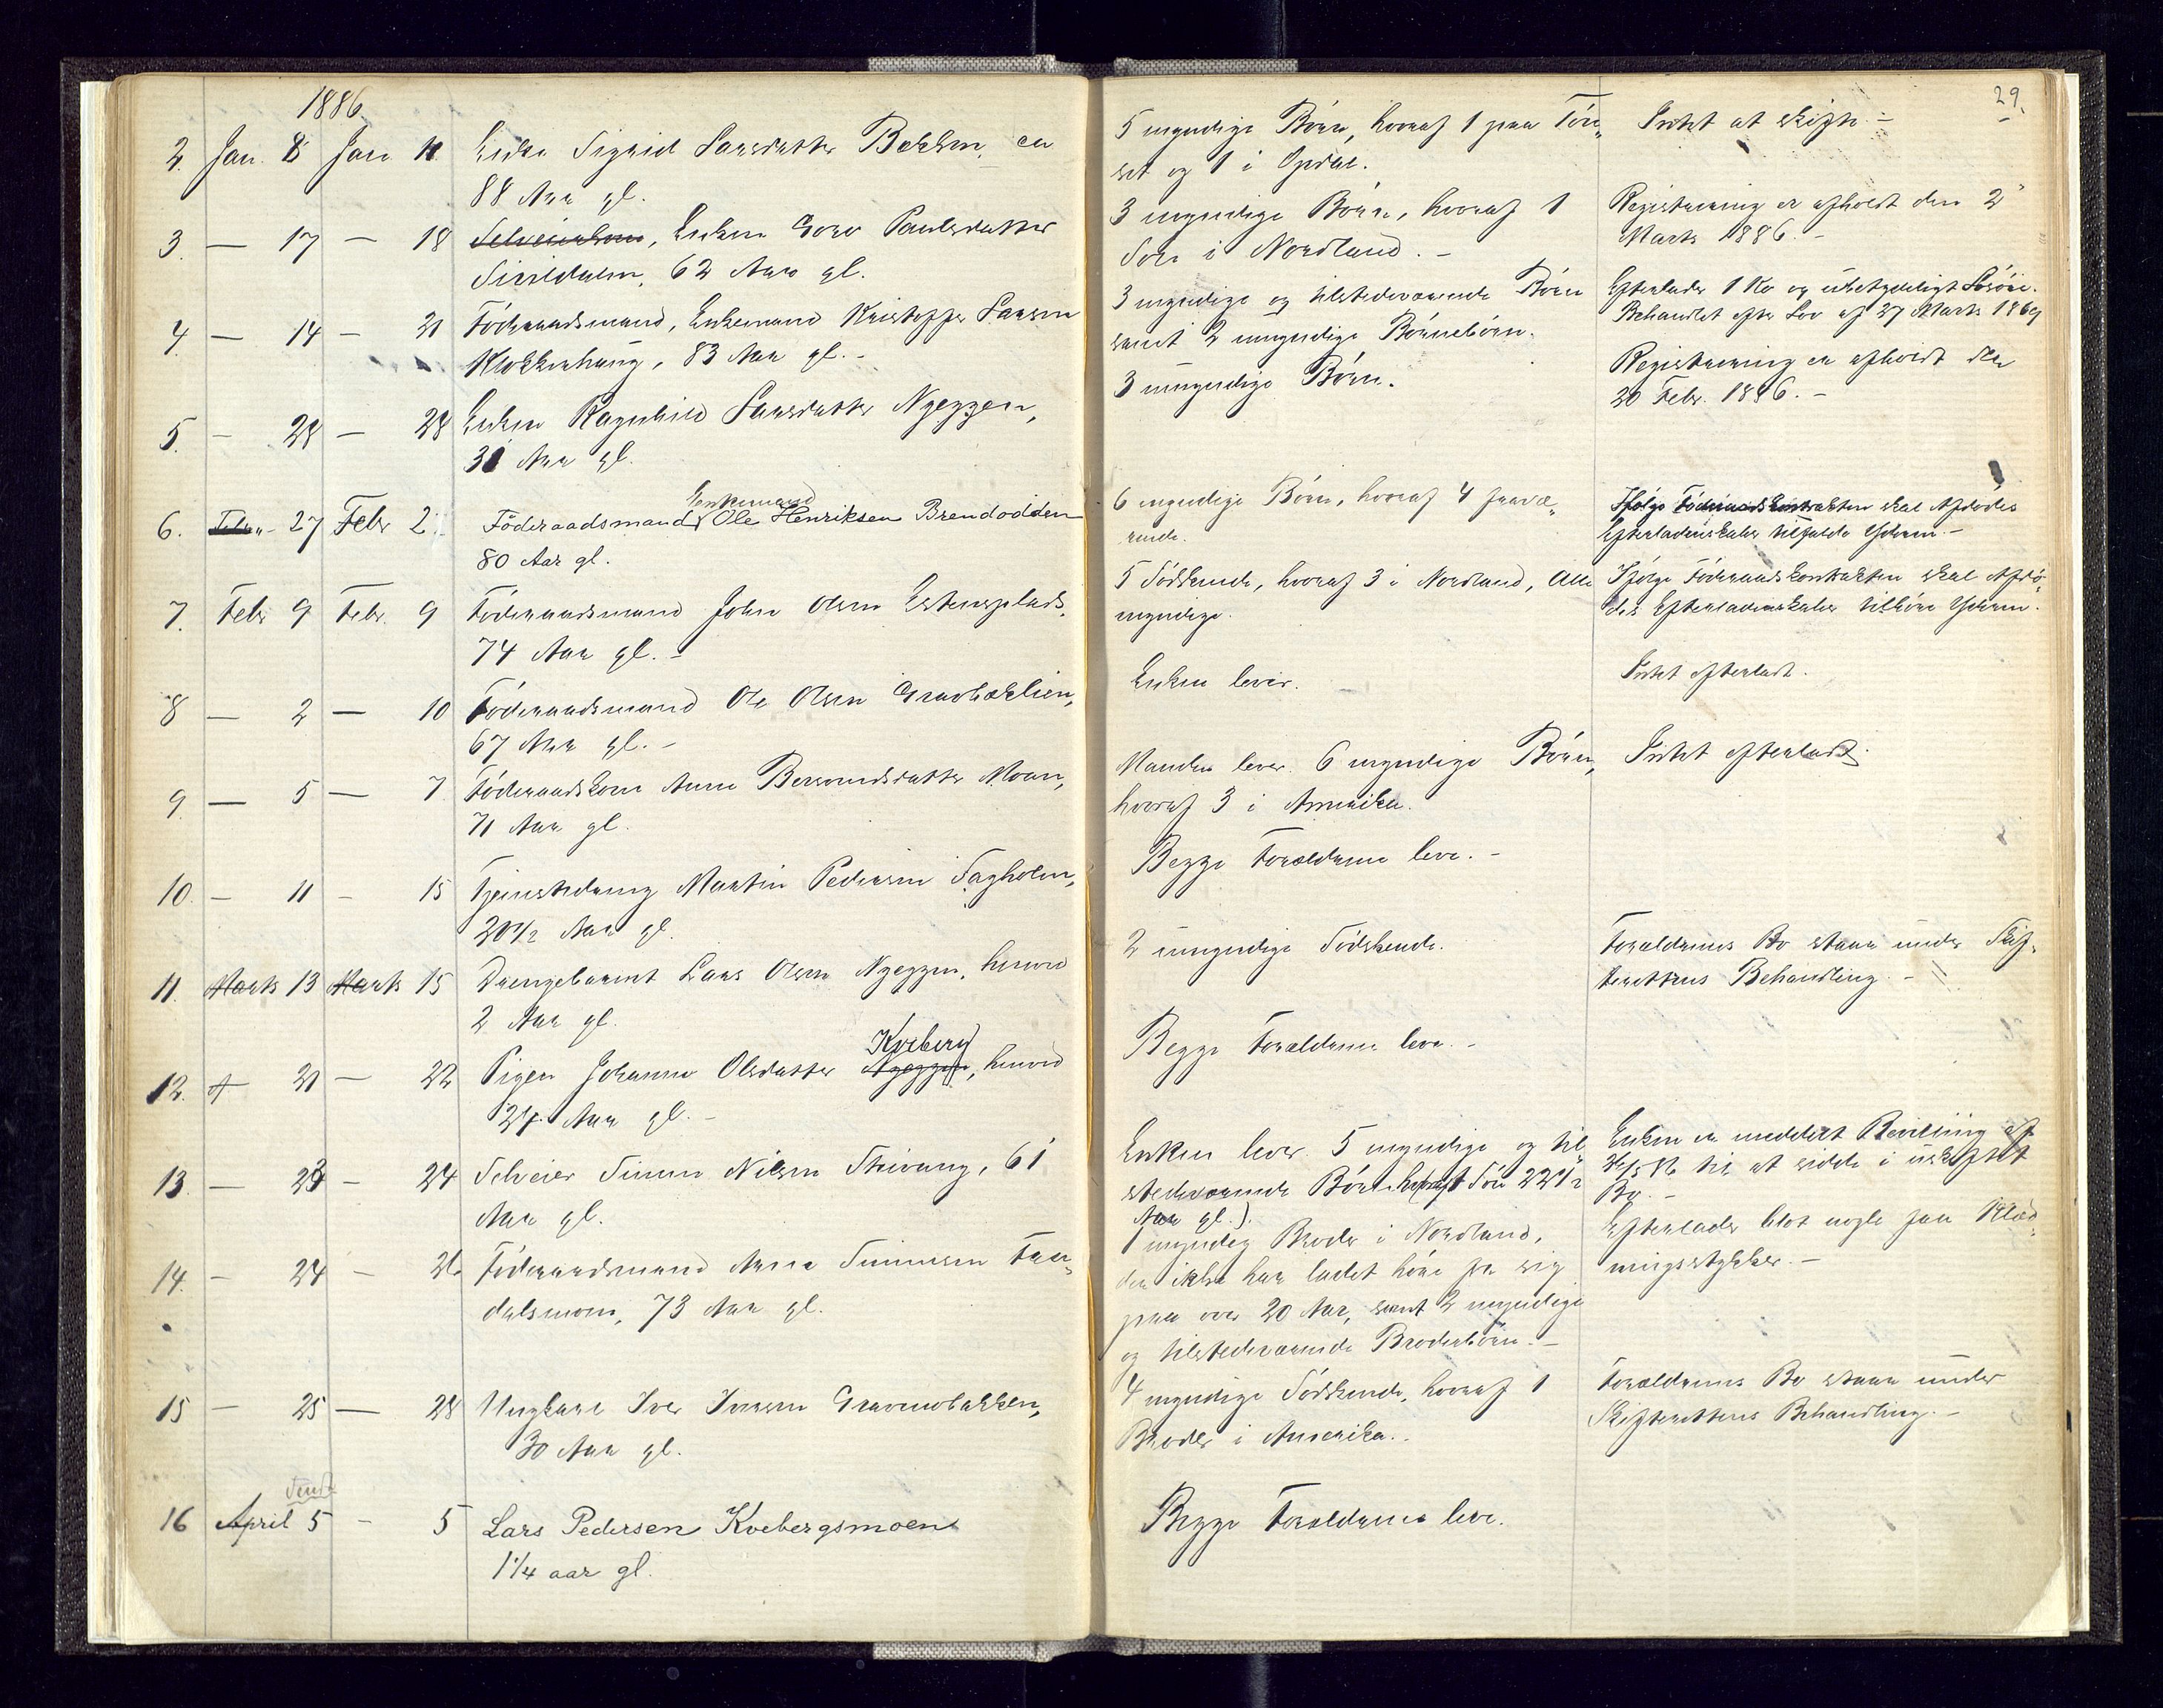 1886
29.
2. Jan. 8 Jan 11. Enke Sigrid Larsdatter Bekken, ca
88 Aar gl.
5 myndige Børn, hvoraf 1 paa Tön„
set og 1 i Opdal.
Intet at skifte. –
3 — 17 — 18 Selveierkone, Enken Goro Paulsdatter
62 Aar gl.
3 myndige Børn, hvoraf 1
Søn i Nordland. –
Registrering er afholdt den 2
Marts 1886. –
4. — 14 — 21 Föderaadsmand, Enkemand Kristoffer Larsen
Klokkerhaug, 83 Aar gl. –
3 myndige og tilstedeværende Børn
samt 2 umyndige Børnebørn.
Efterlader 1 Ko og ubetydeligt Løsøre.
Behandlet efter Lov af 27 Marts 1869
5. — 28 — 28 Enken Ragnhild Larsdatter Nyeggen,
31 Aar gl.
3 umyndige Børn.
Registrering er afholdt den
20 Febr. 1886. –
6. 27 Febr 2. Föderaadsmand Enkemand Ole Henriksen Brendodden
80 Aar gl.
6 myndige Børn, hvoraf 4 fravæ„
rende.
Ifølge Föderaadskontrakten skal Afdødes
Efterladenskaber tilfalde Yderen. –
7. Febr 9 Febr. 9 Föderaadsmand John Olsen Estensplads,
74 Aar gl. –
5 Södskende, hvoraf 3 i Nordland, Alle
myndige.
Ifølge Föderaadskontrakten skal Afdö„
des Efterladenskaber tilhöre Yderen.
8 — 2 — 10 Föderaadsmand Ole Olsen Gravbæklien,
67 Aar gl. –
Enken lever.
Intet efterladt.
9 — 5 — 7 Föderaadskone Anne Bersvendsdatter Moan,
71 Aar gl.
Manden lever. 6 myndige Børn,
hvoraf 3 i Amerika.
Intet efterladt.
10. — 11 — 15 Tjenestedreng Martin Pedersen Fagholen,
20 1/2 Aar gl.
Begge Forældrene leve. –
11. Marts 13 Marts 15 Drengebarnet Lars Olsen Nyeggen, henved
2 Aar gl.
2 umyndige Södskende.
Forældrenes Bo staar under Skif„
terettens Behandling. –
12. — 21 — 22 Pigen Johanne Olsdatter Nyeggen Kveberg, henved
24 Aar gl. –
Begge Forældrene leve. –
13. — 23 — 24 Selveier Simen Nilsen Strivang, 61
Aar gl.
Enken lever. 5 myndige og til„
stedeværende Börn (hvoraf 1 Sön 22 1/2
Aar gl.).
Enken er meddelt Bevilling af
til at sidde i uskiftet
Bo. –
14. — 24 — 26 Föderaadsmand Arne Simensen Fæ„
dalsmoen, 73 Aar gl.
1 myndig Broder i Nordland,
der ikke har ladet höre fra sig
paa over 20 Aar, samt 2 myndige
og tilstedeværende Broderbörn. –
Efterlader blot nogle faa Klæd„
ningsstykker. –
15 — 25 — 28 Ungkarl Iver Iversen Gravmobakken,
30 Aar gl.
4 myndige Södskende, hvoraf 1
Broder i Amerika. –
Forældrenes Bo staar under
Skifterettens Behandling. –
16 April 5 — 5 Lars Pedersen Kvebergsmoen
1 1/4 aar gl.
Begge Forældrene leve.